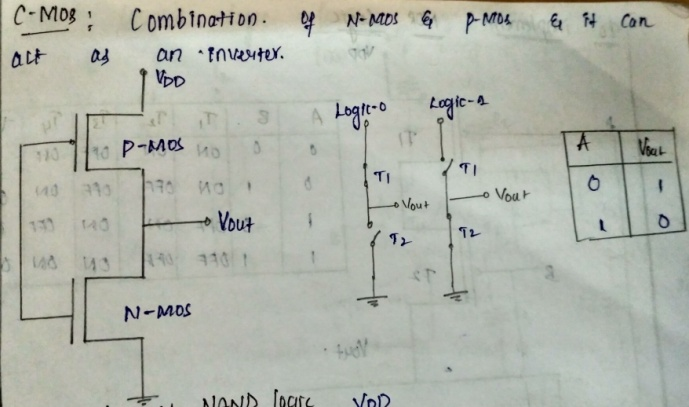 C-MOS: Combination. of N-MOS & P-MOS & it can
act as an inverter.
VDD
P-MOS
Vout
N-MOS
Logic-0
T1
Vout
T2
Logic-1
T1
Vout
T2
A Vout
0 1
1 0
NAND logic VDD